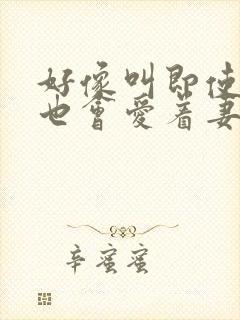 好像叫即使
也會愛着妻
辛蜜蜜